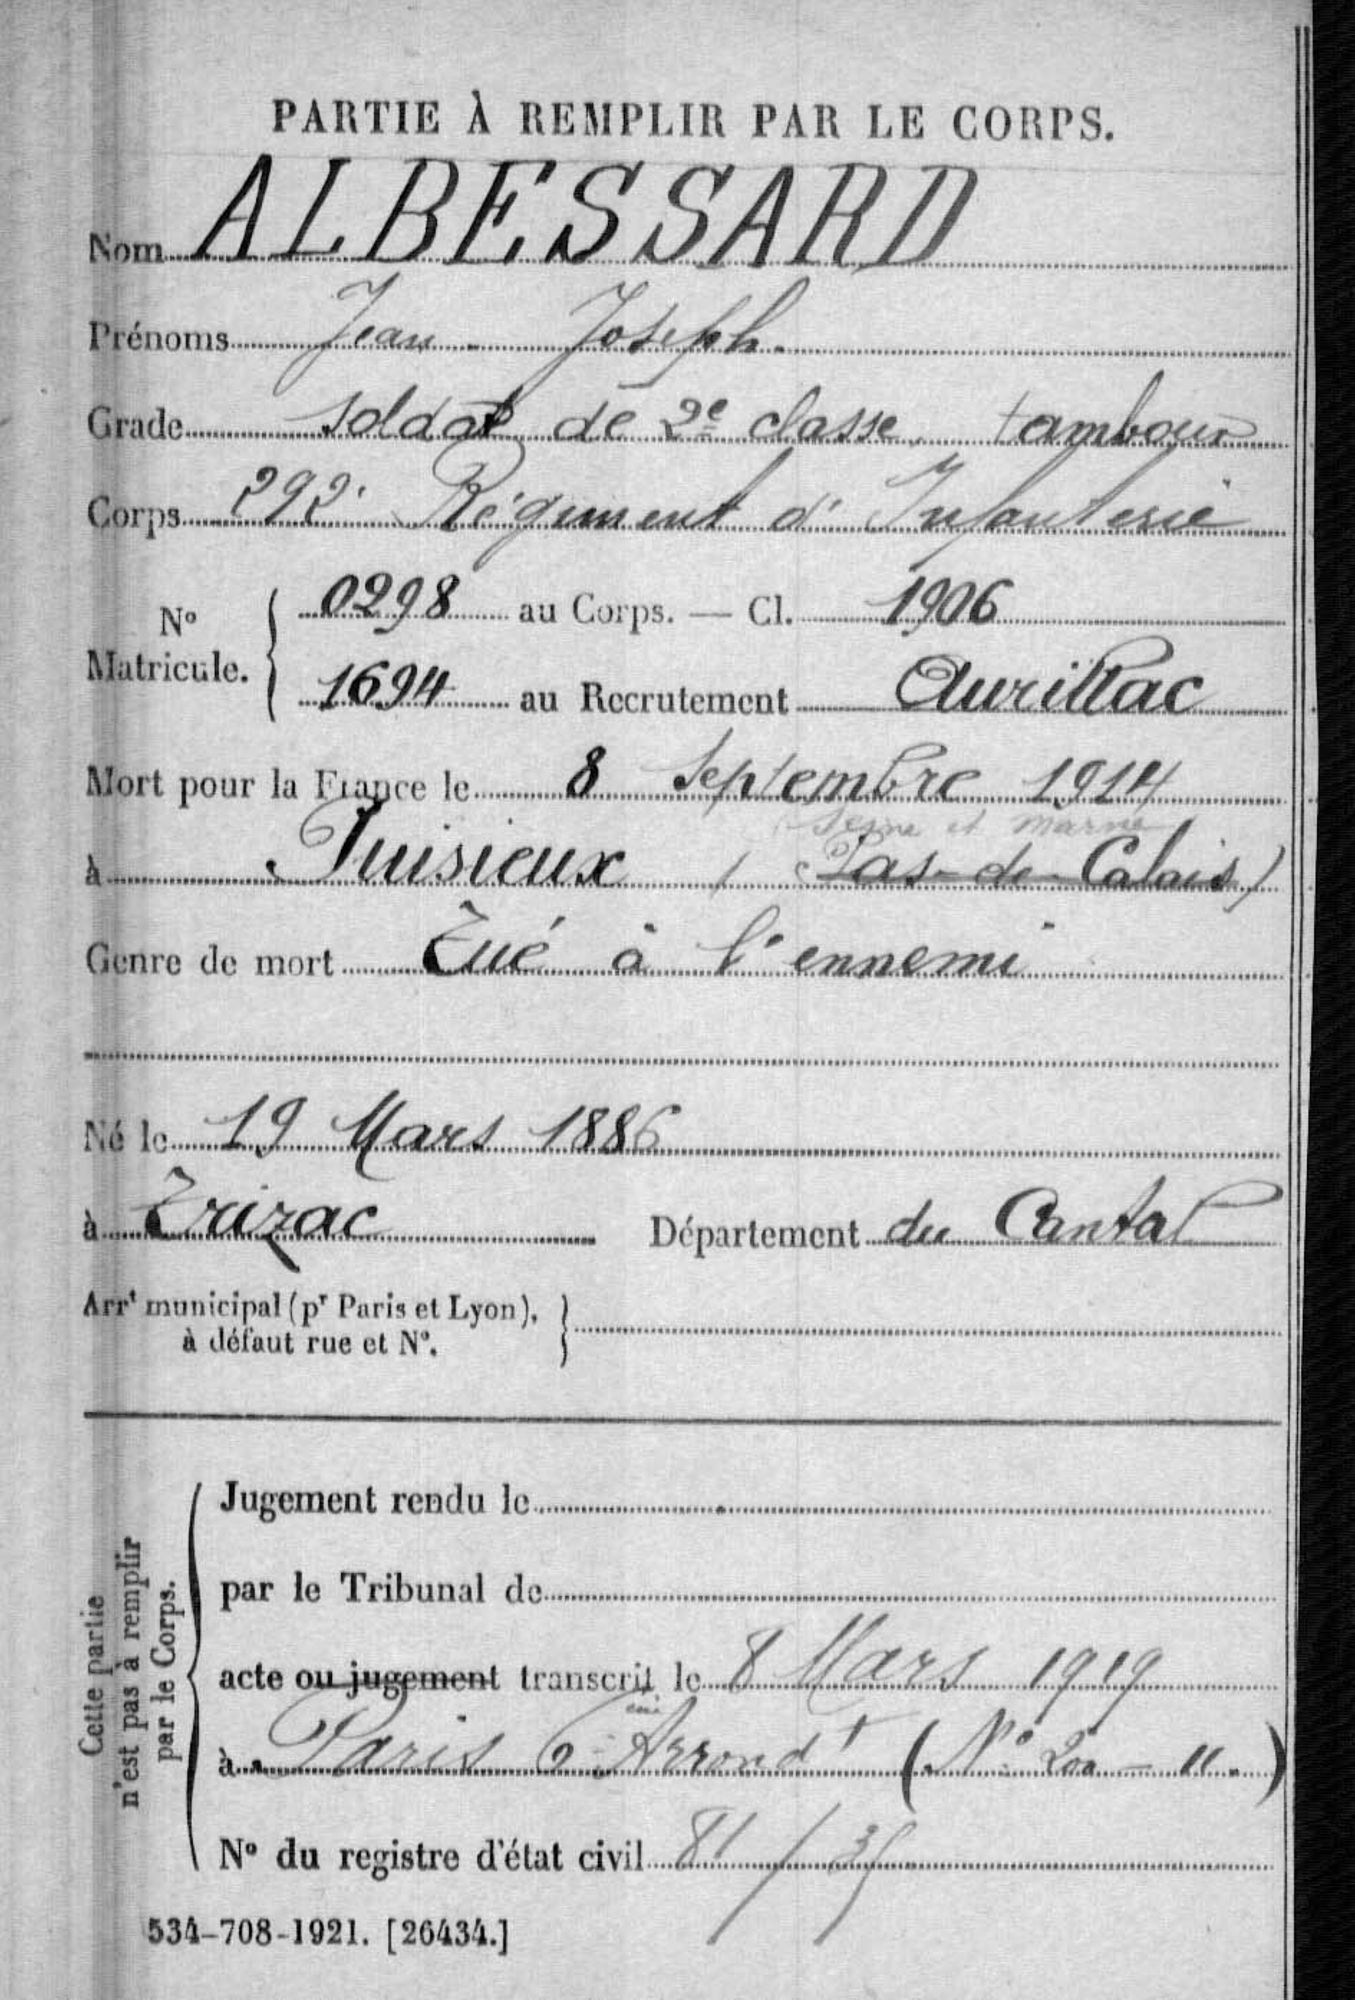 PARTIE À REMPLIR PAR LE CORPS.
Nom ALBESSARD
Prénoms Jean Joseph.
Grade soldat de 2e classe, tambour
Corps 292e Régiment d'Infanterie
No Matricule. { 0298 au Corps. — Cl. 1906
1694 au Recrutement Aurillac
Mort pour la France le 8 Septembre 1914
Seine et Marne
à Puisieux (Pas-de-Calais)
Genre de mort Tué à l'ennemi
Né le 19 Mars 1886
à Trizac Département du Cantal
Arrt municipal (pr Paris et Lyon),
à défaut rue et No. }
Cette partie
n'est pas à remplir
par le Corps.
Jugement rendu le
par le Tribunal de
acte ou jugement transcrit le 8 Mars 1919
à Paris Arrondt (No 200 - 11.)
No du registre d'état civil 81 / 35
534-708-1921. [26434.]